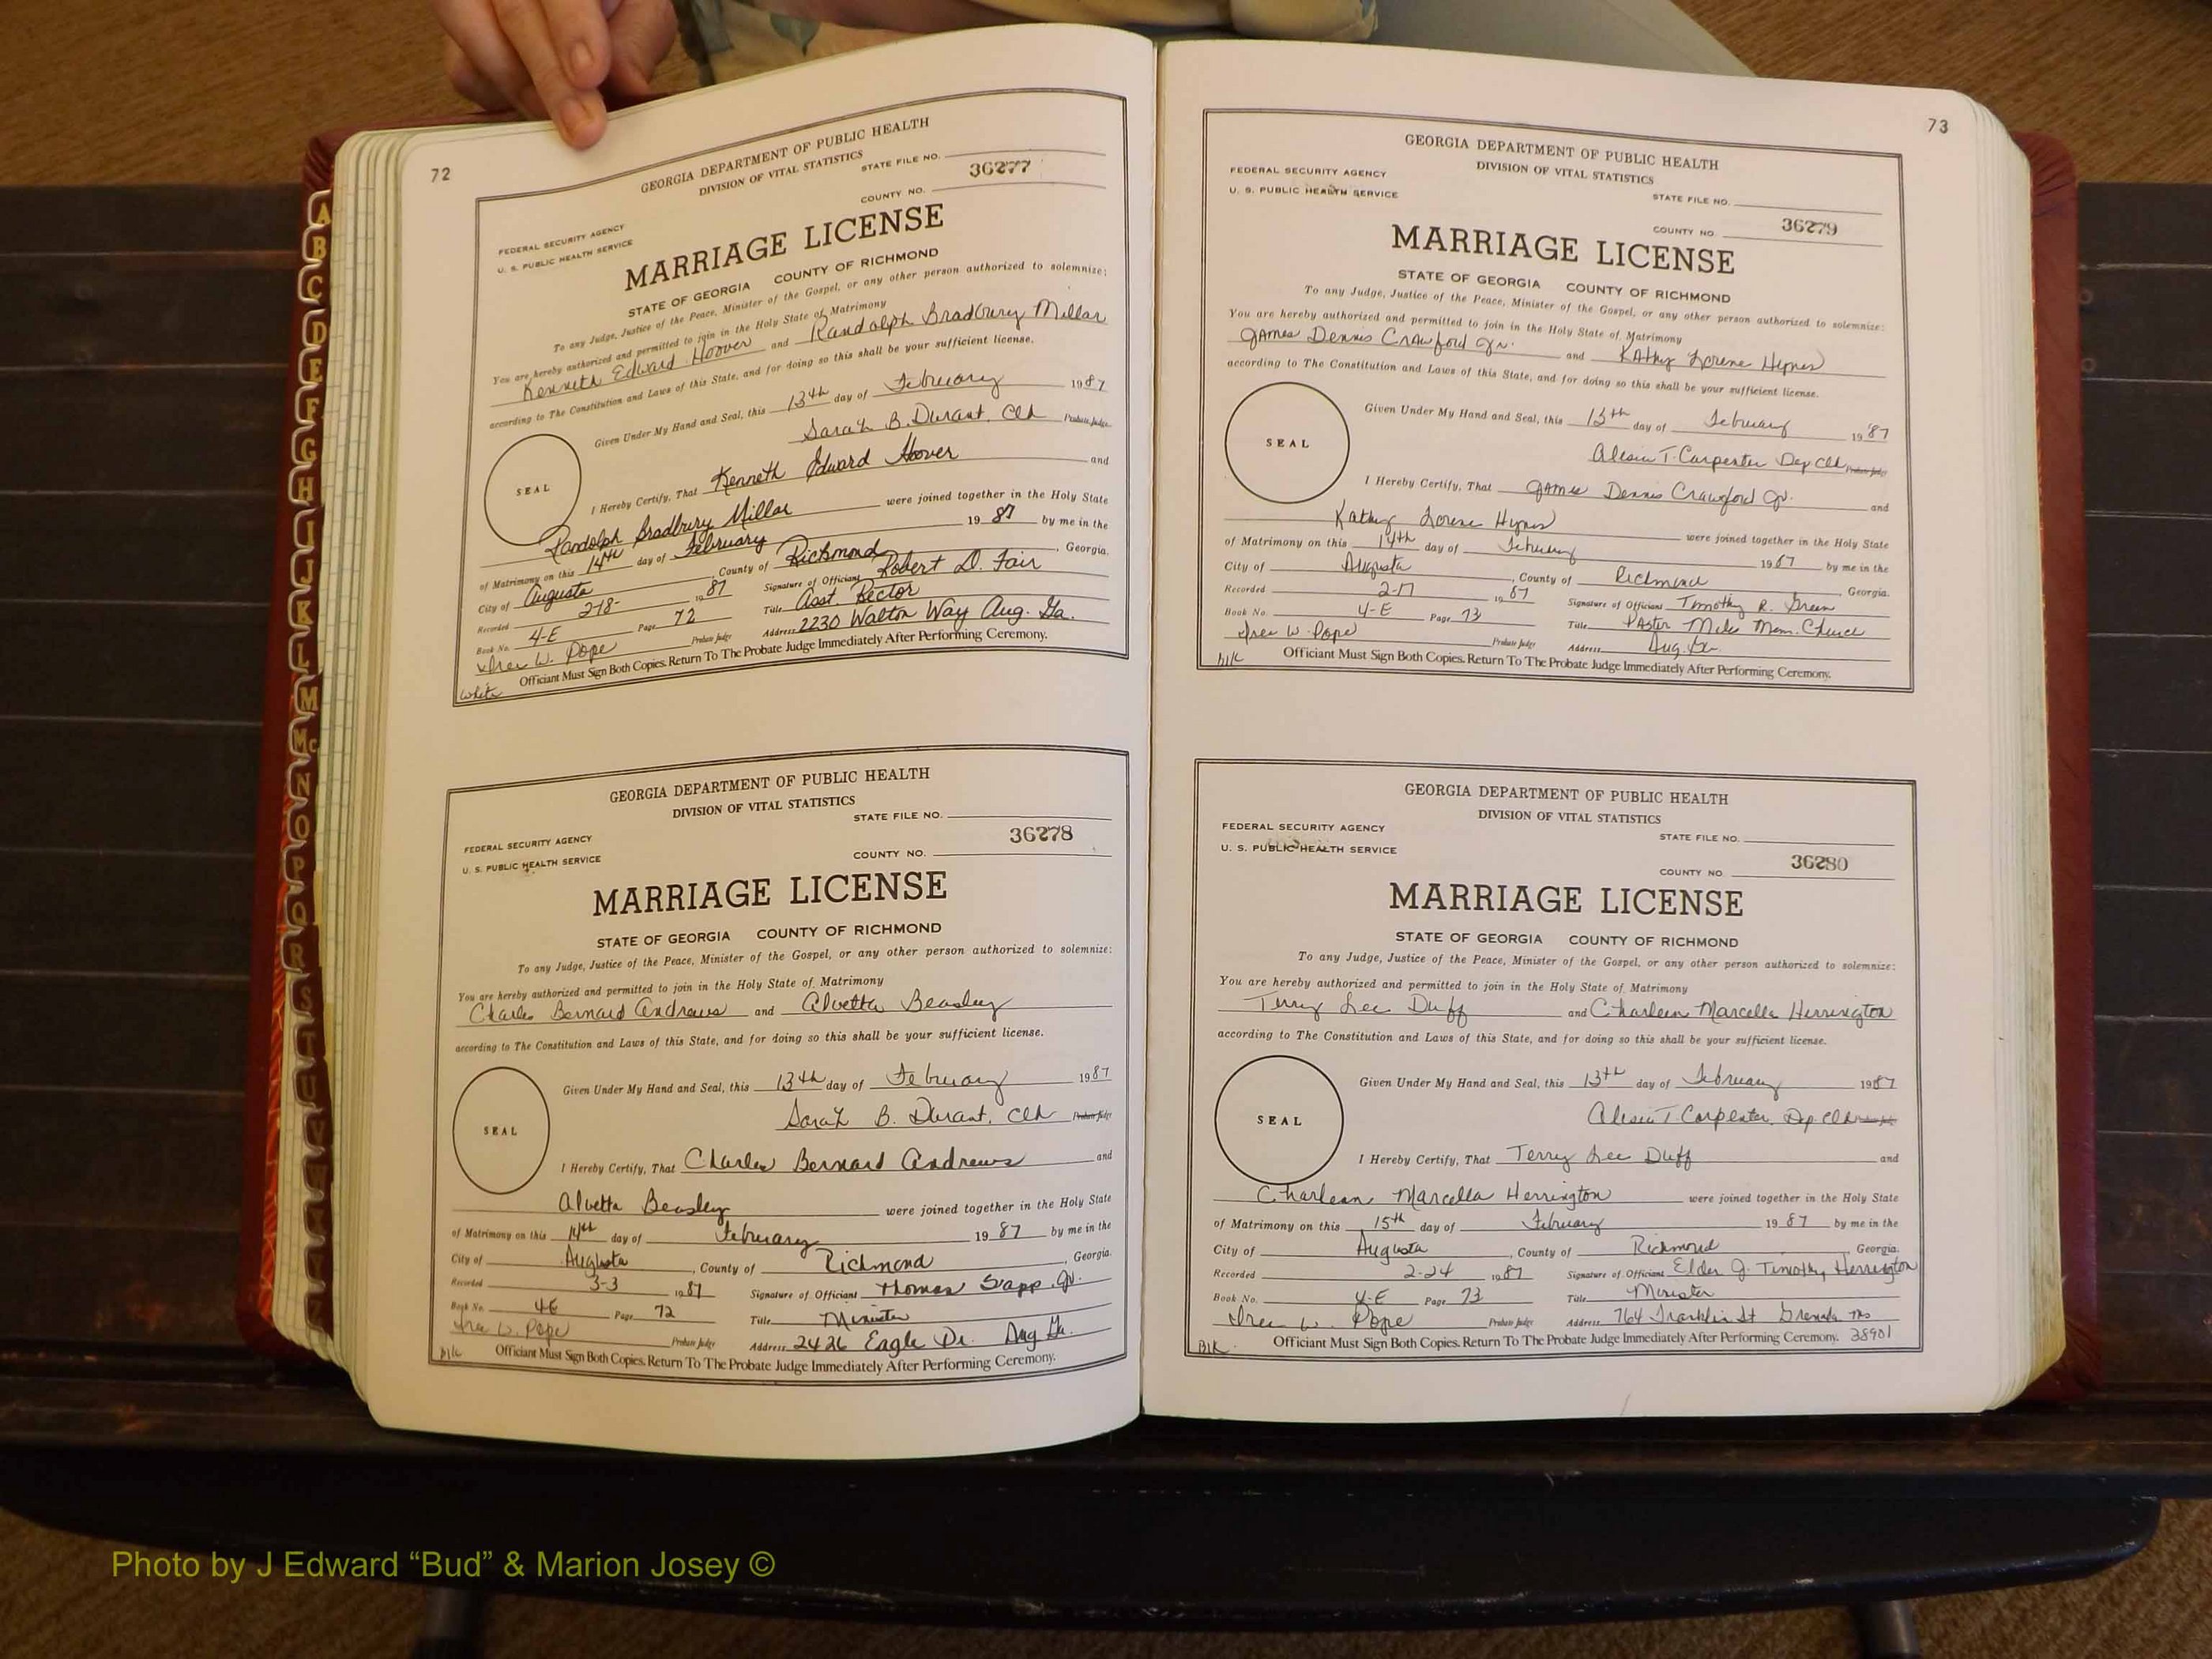 72
GEORGIA DEPARTMENT OF PUBLIC HEALTH
DIVISION OF VITAL STATISTICS
STATE FILE NO.
36277
COUNTY NO.
FEDERAL SECURITY AGENCY
U. S. PUBLIC HEALTH SERVICE
MARRIAGE LICENSE
STATE OF GEORGIA COUNTY OF RICHMOND
To any Judge, Justice of the Peace, Minister of the Gospel, or any other person authorized to solemnize:
You are hereby authorized and permitted to join in the Holy State of Matrimony
Kenneth Edward Hoover and Randolph Bradbury Millar
according to The Constitution and Laws of this State, and for doing so this shall be your sufficient license.
Given Under My Hand and Seal, this 13th day of February 1987
Sarah B. Durant, Clk Probate Judge
SEAL
I Hereby Certify, That Kenneth Edward Hoover and
Randolph Bradbury Millar were joined together in the Holy State
of Matrimony on this 14TH day of February 19 87 by me in the
City of Augusta, County of Richmond, Georgia.
Recorded 2-18- 1987 Signature of Officiant Robert D. Fair
Book No. 4-E Page 72 Title Asst. Rector
W. Pope Probate Judge Address 2230 Walton Way Aug. Ga.
Officiant Must Sign Both Copies. Return To The Probate Judge Immediately After Performing Ceremony.
White
GEORGIA DEPARTMENT OF PUBLIC HEALTH
DIVISION OF VITAL STATISTICS
STATE FILE NO.
36278
COUNTY NO.
FEDERAL SECURITY AGENCY
U. S. PUBLIC HEALTH SERVICE
MARRIAGE LICENSE
STATE OF GEORGIA COUNTY OF RICHMOND
To any Judge, Justice of the Peace, Minister of the Gospel, or any other person authorized to solemnize:
You are hereby authorized and permitted to join in the Holy State of Matrimony
Charles Bernard Andrews and Alvetta Beasley
according to The Constitution and Laws of this State, and for doing so this shall be your sufficient license.
Given Under My Hand and Seal, this 13th day of February 1987
Sarah B. Durant, Clk Probate Judge
SEAL
I Hereby Certify, That Charles Bernard Andrews and
Alvetta Beasley were joined together in the Holy State
of Matrimony on this 14th day of February 19 87 by me in the
City of Augusta, County of Richmond, Georgia.
Recorded 3-3 1987 Signature of Officiant Thomas Sapp, Jr.
Book No. 4E Page 72 Title Minister
W. Pope Probate Judge Address 2426 Eagle Dr. Aug Ga.
Blk Officiant Must Sign Both Copies. Return To The Probate Judge Immediately After Performing Ceremony.
73
GEORGIA DEPARTMENT OF PUBLIC HEALTH
DIVISION OF VITAL STATISTICS
FEDERAL SECURITY AGENCY
U. S. PUBLIC HEALTH SERVICE
STATE FILE NO.
36279
COUNTY NO.
MARRIAGE LICENSE
STATE OF GEORGIA COUNTY OF RICHMOND
To any Judge, Justice of the Peace, Minister of the Gospel, or any other person authorized to solemnize:
You are hereby authorized and permitted to join in the Holy State of Matrimony
James Dennis Crawford Jr. and Kathy Lorene Hynes
according to The Constitution and Laws of this State, and for doing so this shall be your sufficient license.
Given Under My Hand and Seal, this 13th day of February 1987
Alesia T. Carpenter Dep Clk Probate Judge
SEAL
I Hereby Certify, That James Dennis Crawford Jr. and
Kathy Lorene Hynes were joined together in the Holy State
of Matrimony on this 14th day of February 1987 by me in the
City of Augusta, County of Richmond, Georgia.
Recorded 2-17 1987 Signature of Officiant Timothy R. Green
Book No. 4-E Page 73 Title Pastor Miles Mem. Church
W. Pope Probate Judge Address Aug. Ga
Blk Officiant Must Sign Both Copies. Return To The Probate Judge Immediately After Performing Ceremony.
GEORGIA DEPARTMENT OF PUBLIC HEALTH
DIVISION OF VITAL STATISTICS
FEDERAL SECURITY AGENCY
U. S. PUBLIC HEALTH SERVICE
STATE FILE NO.
36280
COUNTY NO
MARRIAGE LICENSE
STATE OF GEORGIA COUNTY OF RICHMOND
To any Judge, Justice of the Peace, Minister of the Gospel, or any other person authorized to solemnize:
You are hereby authorized and permitted to join in the Holy State of Matrimony
Terry Lee Duff and Charleen Marcella Herrington
according to The Constitution and Laws of this State, and for doing so this shall be your sufficient license.
Given Under My Hand and Seal, this 13th day of February 1987
Alesia T. Carpenter, Dep. Clk Probate Judge
SEAL
I Hereby Certify, That Terry Lee Duff and
Charlean Marcella Herrington were joined together in the Holy State
of Matrimony on this 15th day of February 19 87 by me in the
City of Augusta, County of Richmond, Georgia.
Recorded 2-24 1987 Signature of Officiant Elder J. Timothy Herrington
Book No. 4-E Page 73 Title Minister
W. Pope Probate Judge Address 764 Franklin St Grenada Ms
Blk. Officiant Must Sign Both Copies. Return To The Probate Judge Immediately After Performing Ceremony. 38901
A
B
C
D
E
F
G
H
I
J
K
L
M
Mc
N
O
P
Q
R
S
T
U
V
Photo by J Edward “Bud” & Marion Josey ©